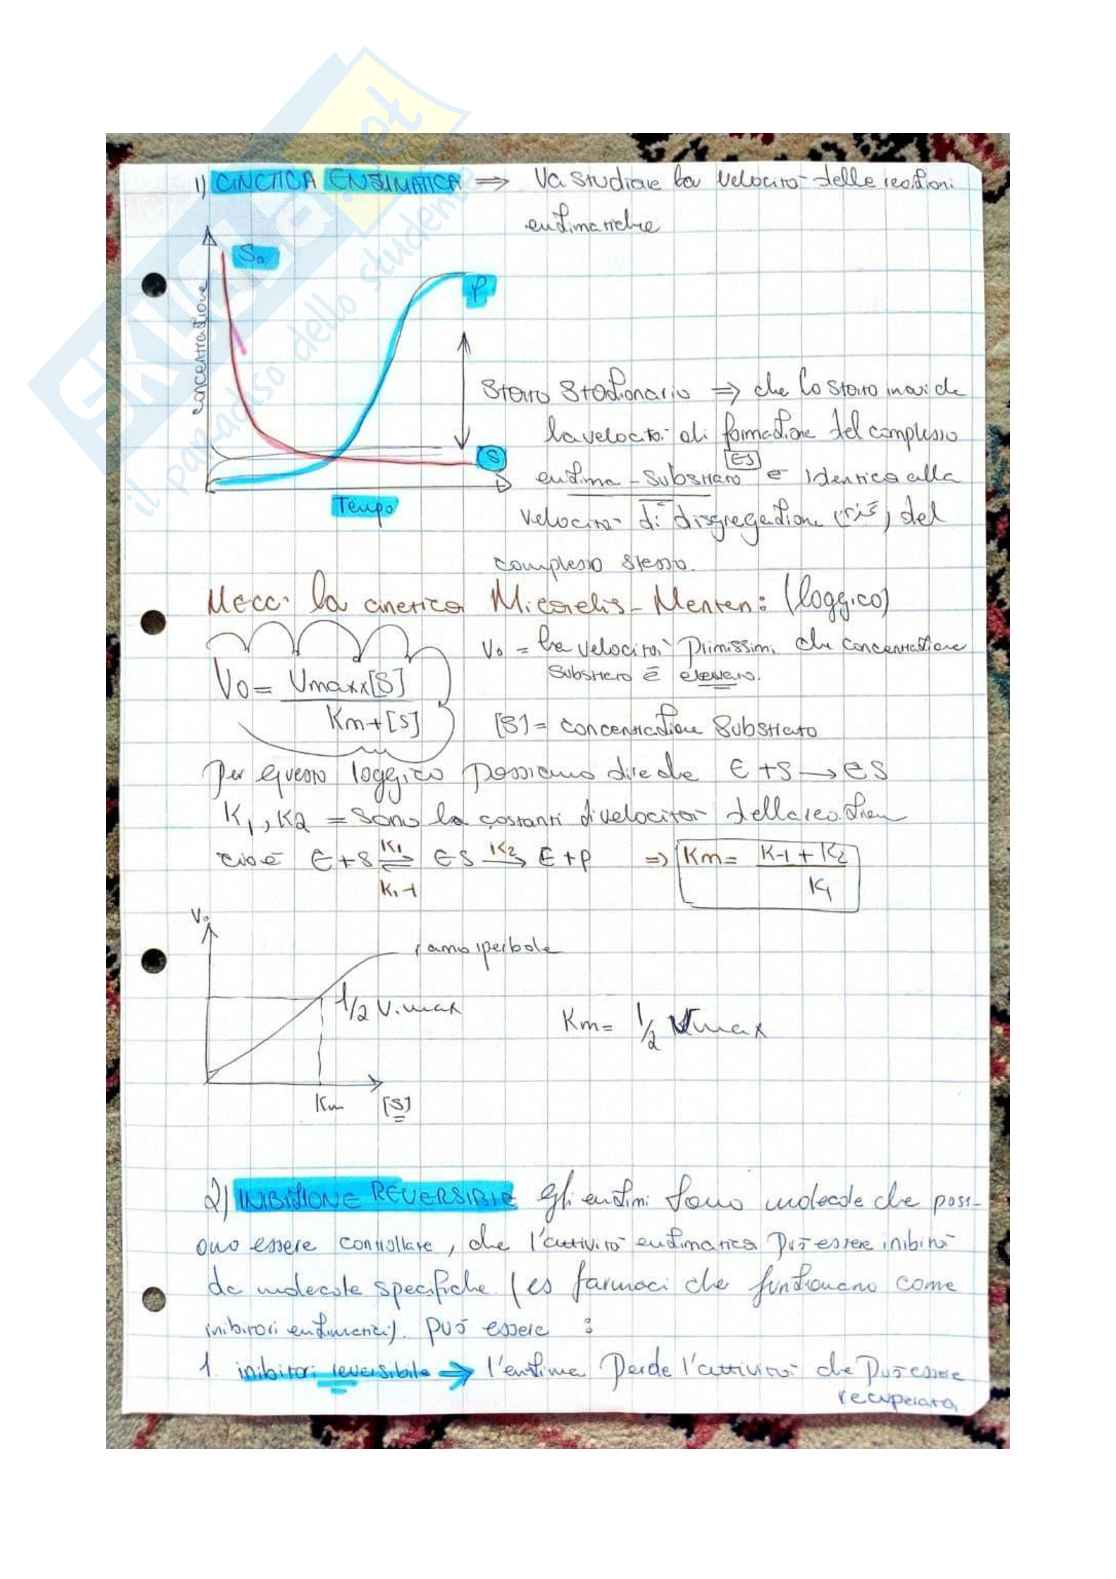 1) CINETICA ENZIMATICA ⇒ Va studiare la velocità delle reazioni
enzimatiche
S₀
P
concentrazione
Stato Stazionario ⇒ che lo stato in cui
la velocità di formazione del complesso
[ES]
enzima - Substrato e identica alla
S
velocità di disgregazione del
Tempo
complesso stesso.
la cinetica Micaelis-Menten: (loggico)
V₀ = la velocità primissimi che concentrazione
Substrato è elevato.
V₀ = Vmaxx[S]
Km+[S]
[S] = concentrazione Substrato
Per questo loggico possiamo dire che E+S → ES
K₁, K2 = sono la costanti di velocità della reazion
cioè E+S ⇌ ES → E+P ⇒ Km= K-1 + K2
K1 K2
K-1 K1
V₀
ramo iperbole
1/2 V.max
Km= 1/2 Vmax
Km [S]
2) INIBIZIONE REVERSIBILE Gli enzimi sono molecole che poss-
ono essere controllate, che l'attività enzimatica può essere inibita
da molecole specifiche (es farmaci che funzionano come
inibitori enzimatici). può essere :
1. inibitori reversibile → l'enzima Perde l'attività che Può essere
recuperata
SKUOLA.net
il paradiso dello studente